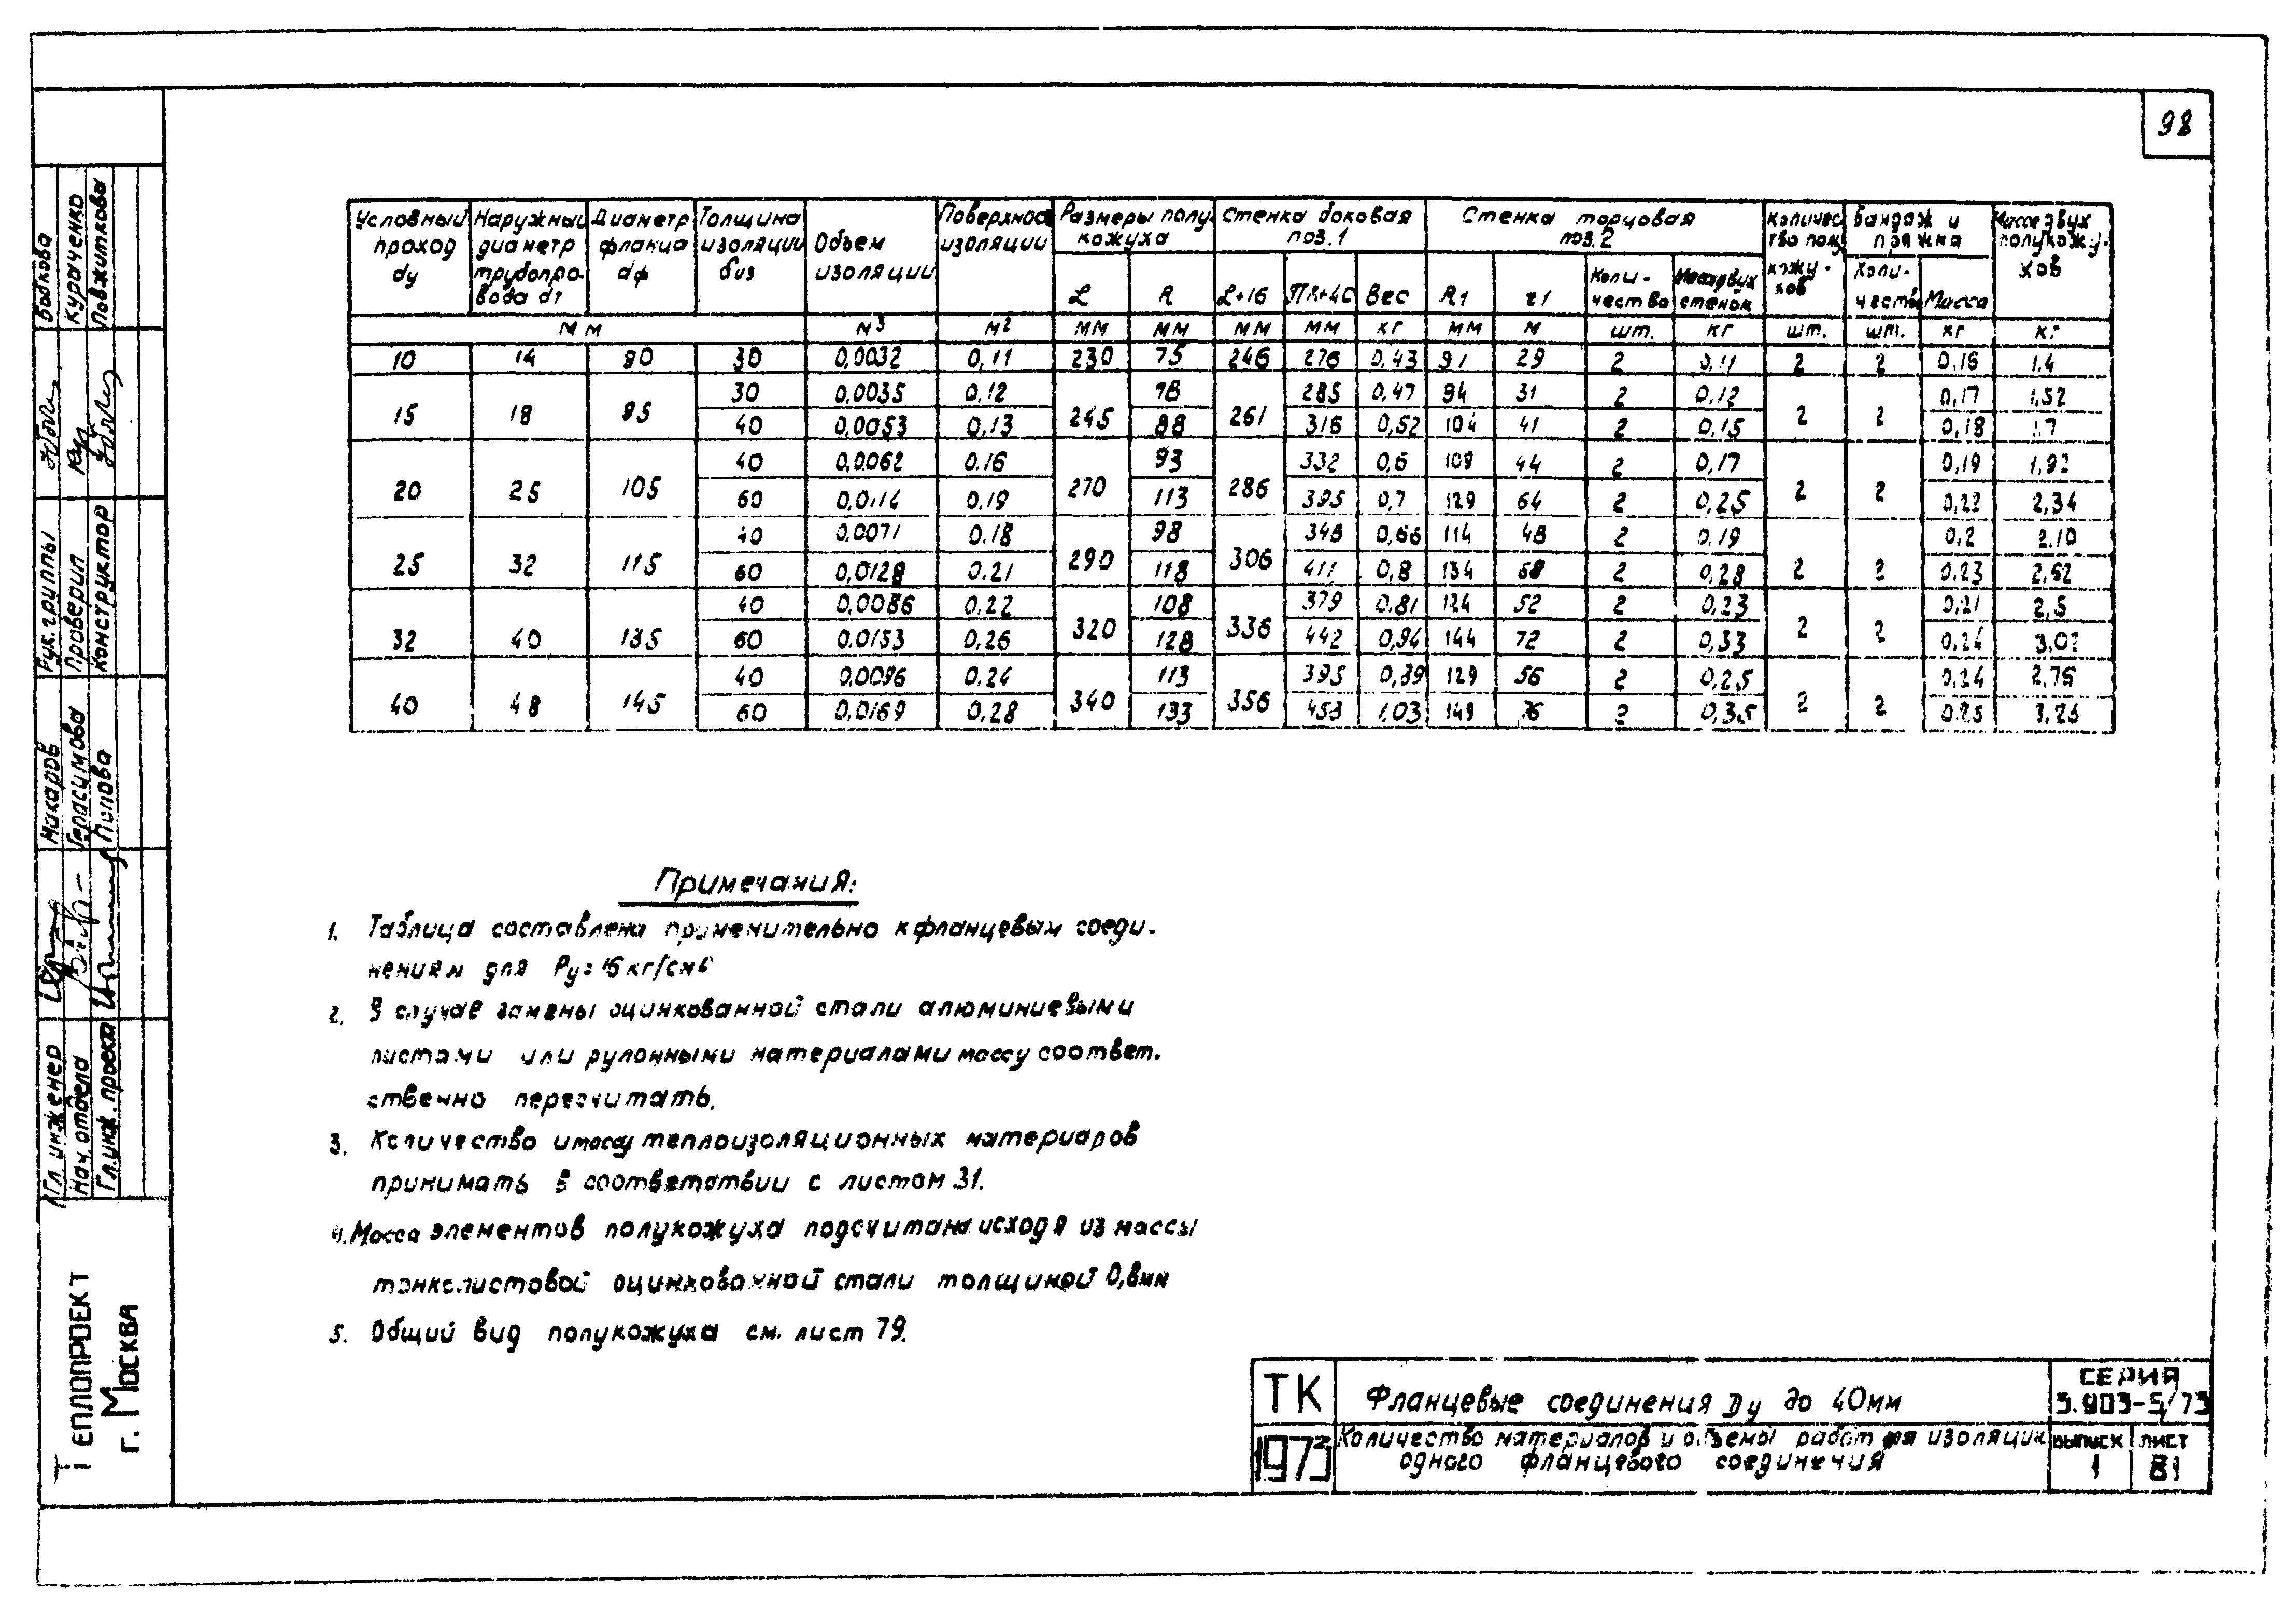 98
Условный проход dу | Наружный диаметр трубопровода dт | Диаметр фланца dф | Толщина изоляции биз | Объем изоляции | Поверхнос изоляции | Размеры полукожуха | Стенка боковая поз.1 | Стенка торцовая поз.2 | Количество полукожухов | Бандаж и пряжка | Масса двух полукожухов
L | R | L+16 | ПR+40 | Вес | R1 | r1 | Количество | Масса двух стенок | Количество | Масса
мм | м3 | м2 | мм | мм | мм | мм | кг | мм | м | шт. | кг | шт. | шт. | кг | кг
10 | 14 | 90 | 30 | 0,0032 | 0,11 | 230 | 75 | 246 | 276 | 0,43 | 91 | 29 | 2 | 0,11 | 2 | 2 | 0,16 | 1,4
15 | 18 | 95 | 30 | 0,0035 | 0,12 | 245 | 78 | 261 | 285 | 0,47 | 94 | 31 | 2 | 0,12 | 2 | 2 | 0,17 | 1,52
40 | 0,0053 | 0,13 | 88 | 316 | 0,52 | 104 | 41 | 2 | 0,15 | 0,18 | 1,7
20 | 25 | 105 | 40 | 0,0062 | 0.16 | 270 | 93 | 286 | 332 | 0,6 | 109 | 44 | 2 | 0,17 | 2 | 2 | 0,19 | 1,92
60 | 0,0114 | 0,19 | 113 | 395 | 0,7 | 129 | 64 | 2 | 0,25 | 0,22 | 2,34
25 | 32 | 115 | 40 | 0,0071 | 0.18 | 290 | 98 | 306 | 348 | 0,66 | 114 | 48 | 2 | 0.19 | 2 | 2 | 0,2 | 2.10
60 | 0,0128 | 0.21 | 118 | 411 | 0,8 | 134 | 68 | 2 | 0,28 | 0,23 | 2,62
32 | 40 | 135 | 40 | 0,0086 | 0,22 | 320 | 108 | 336 | 379 | 0,81 | 124 | 52 | 2 | 0,23 | 2 | 2 | 0,21 | 2,5
60 | 0.0153 | 0,26 | 128 | 442 | 0,94 | 144 | 72 | 2 | 0,33 | 0,24 | 3,02
40 | 48 | 145 | 40 | 0,0096 | 0.24 | 340 | 113 | 356 | 395 | 0,89 | 129 | 56 | 2 | 0,25 | 2 | 2 | 0,24 | 2,76
60 | 0,0169 | 0,28 | 133 | 458 | 1,03 | 149 | 76 | 2 | 0,35 | 0.25 | 3,26
Примечания:
1. Таблица составлена применительно к фланцевым соеди-
нениям для Ру=16 кг/см2
2. В случае замены оцинкованной стали алюминиевыми
листами или рулонными материалами массу соответ-
ственно пересчитать.
3. Количество и массу теплоизоляционных материаров
принимать в соответствии с листом 31.
4. Масса элементов полукожуха подсчитана исходя из массы
тонколистовой оцинкованной стали толщиной 0,8мм
5. Общий вид полукожуха см. лист 79.
ТК
1973
Фланцевые соединения Dу до 40мм
Количество материалов и объемы работ для изоляции
одного фланцевого соединения
СЕРИЯ
3.903-5/73
ВЫПУСК
1
ЛИСТ
81
Бобкова
Кураченко
Ловжиткова
Рук. группы
Проверил
Конструктор
Макаров
Герасимова
Попова
Гл. инженер
Нач. отдела
Гл. инж. проекта
ТЕПЛОПРОЕКТ
г. Москва